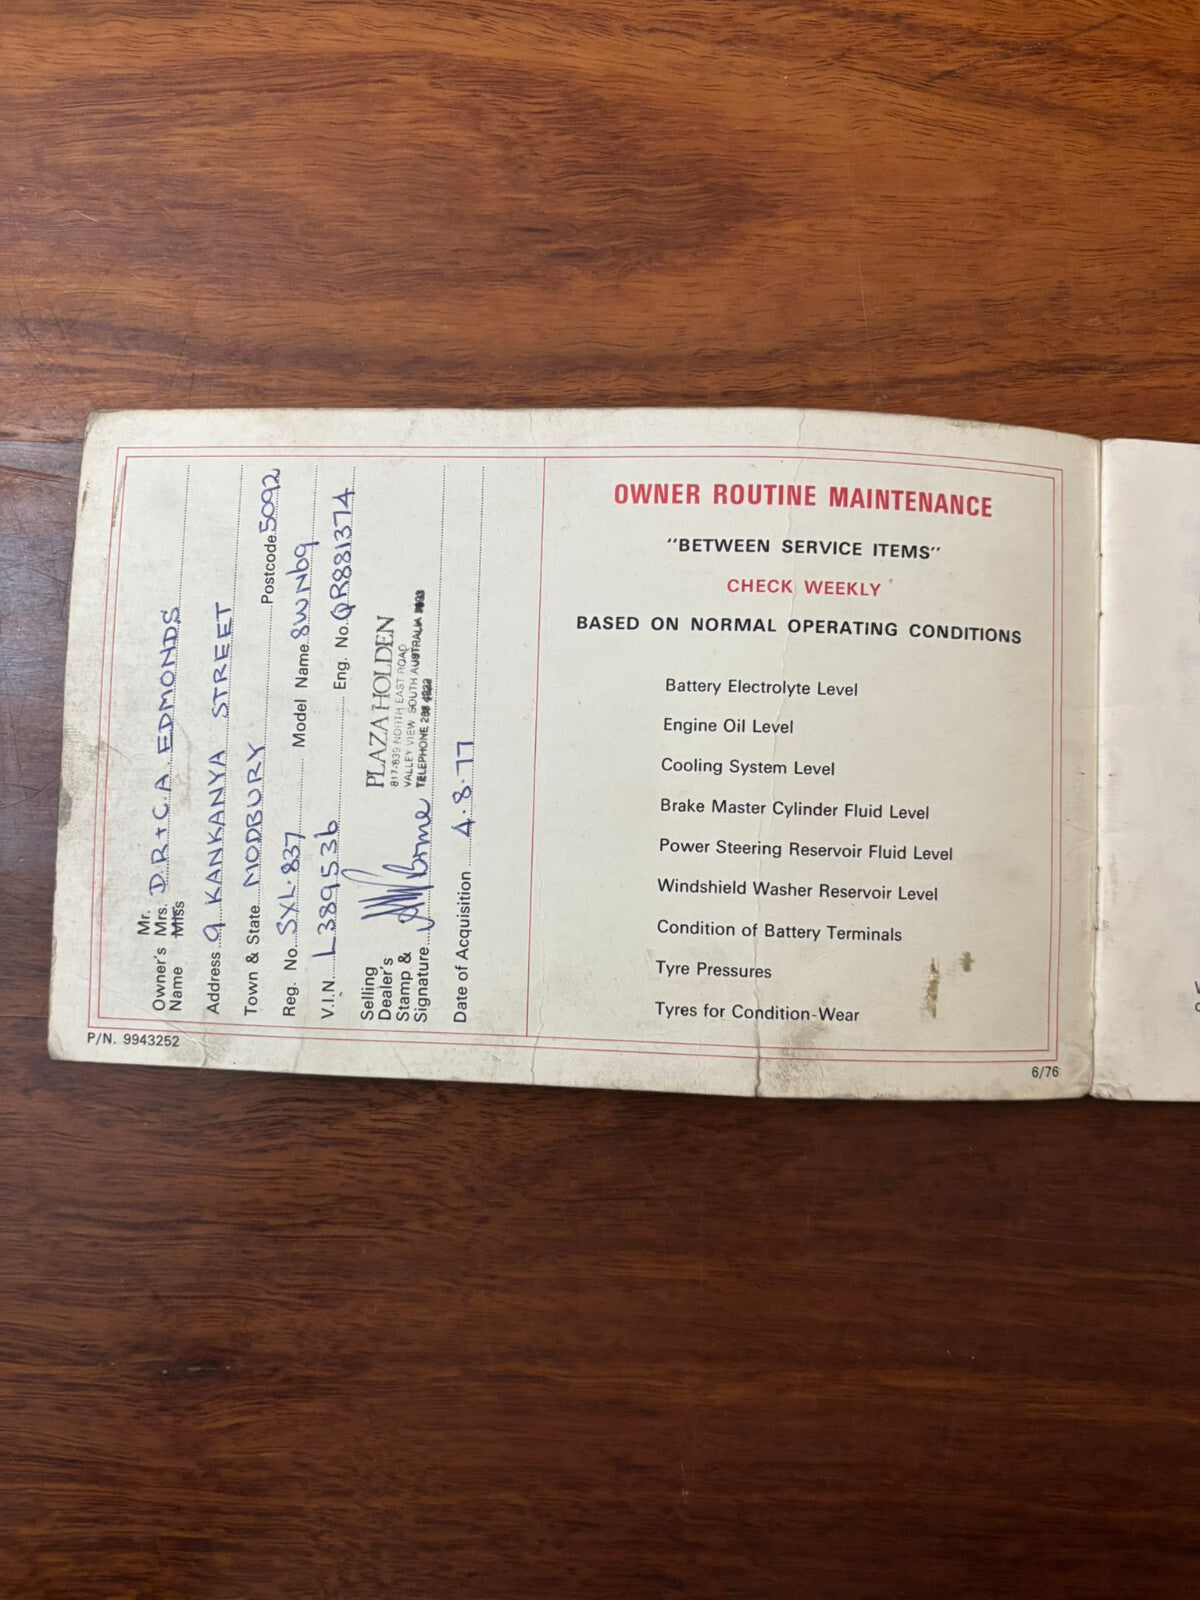 Owner's Name Mr. Mrs. Miss D.R + C.A. EDMONDS
Address 9 KANKANYA STREET
Town & State MODBURY Postcode 5092
Reg. No. SXL·837 Model Name 8WN69
V.I.N. L389536 Eng. No. QR881374
Selling Dealer's Stamp & Signature
PLAZA HOLDEN
817-839 NORTH EAST ROAD
VALLEY VIEW SOUTH AUSTRALIA
TELEPHONE
Date of Acquisition 4.8.77
P/N. 9943252
OWNER ROUTINE MAINTENANCE
"BETWEEN SERVICE ITEMS"
CHECK WEEKLY
BASED ON NORMAL OPERATING CONDITIONS
Battery Electrolyte Level
Engine Oil Level
Cooling System Level
Brake Master Cylinder Fluid Level
Power Steering Reservoir Fluid Level
Windshield Washer Reservoir Level
Condition of Battery Terminals
Tyre Pressures
Tyres for Condition-Wear
6/76